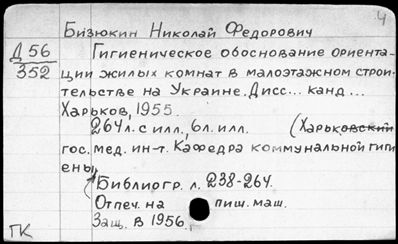 4
Бизюкин Николай Федорович
Д 56
352
Гигиеническое обоснование ориента-
ции жилых комнат в малоэтажном строи-
тельстве на Украине. Дисс... канд...
Харьков, 1955.
264 л. с илл., 6 л. илл. (Харьковский
гос. мед. ин-т. Кафедра коммунальной гиги
ены)
Библиогр. л. 238-264.
Отпеч. на пиш. маш.
Защ. в 1956.
ГК